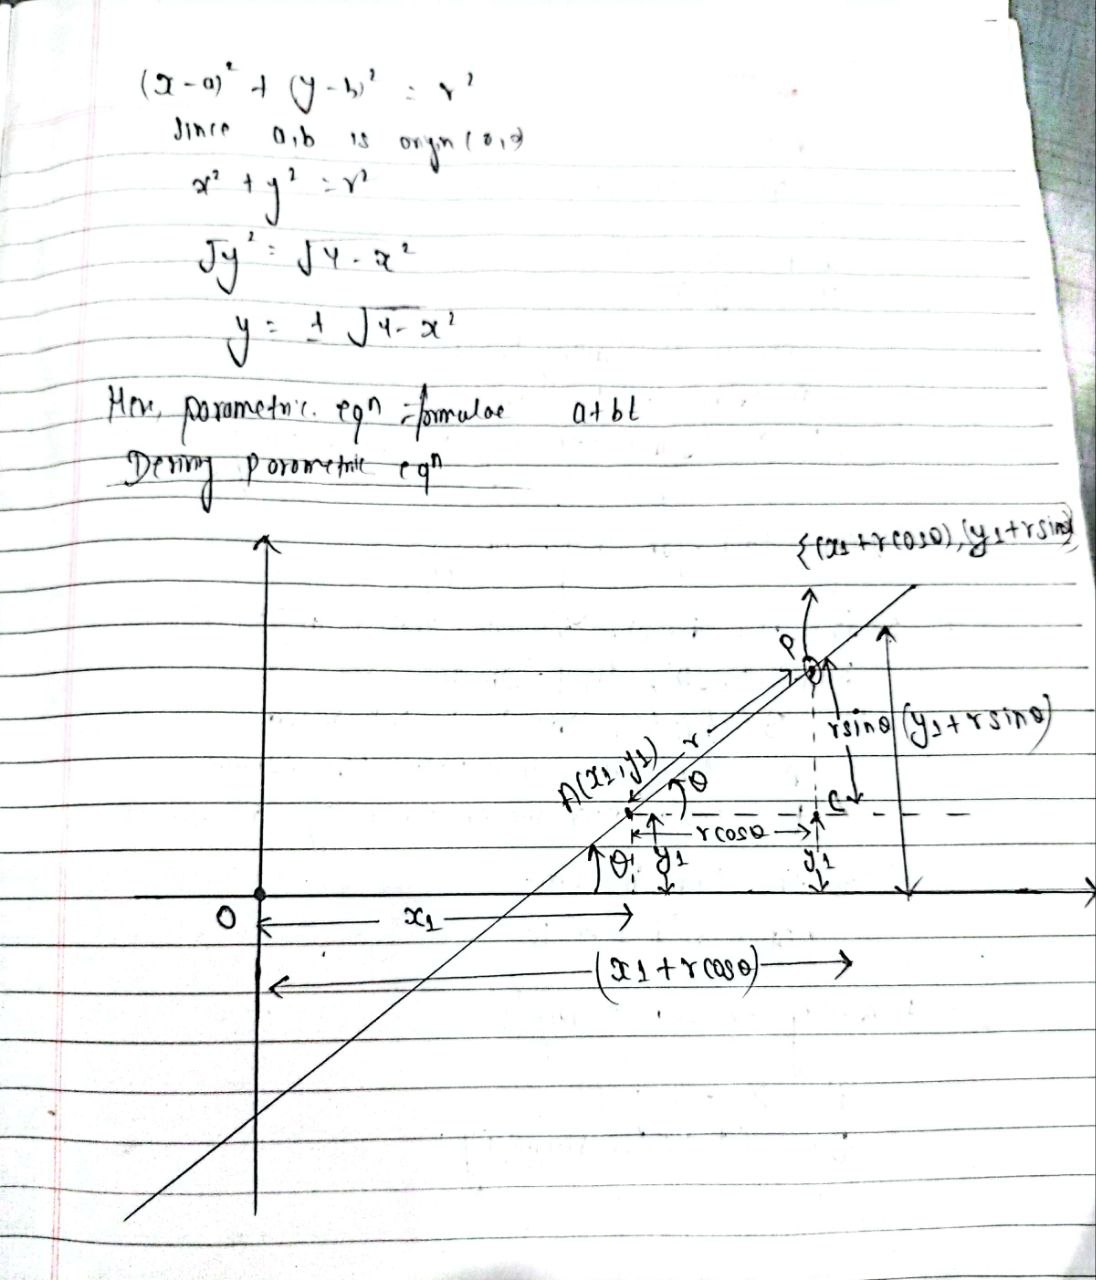 (x-a)² + (y-b)² = r²
Since a,b is origin (0,0)
x² + y² = r²
√y² = √4-x²
y = ± √4-x²
Here, parametric eqⁿ =formulae a+bt
Deriving parametric eqⁿ
{(x1+rcosθ),(y1+rsinθ)
P
rsinθ (y1+rsinθ)
r
A(x1,y1)
θ
C
rcosθ
θ y1 y1
O x1
(x1+rcosθ)